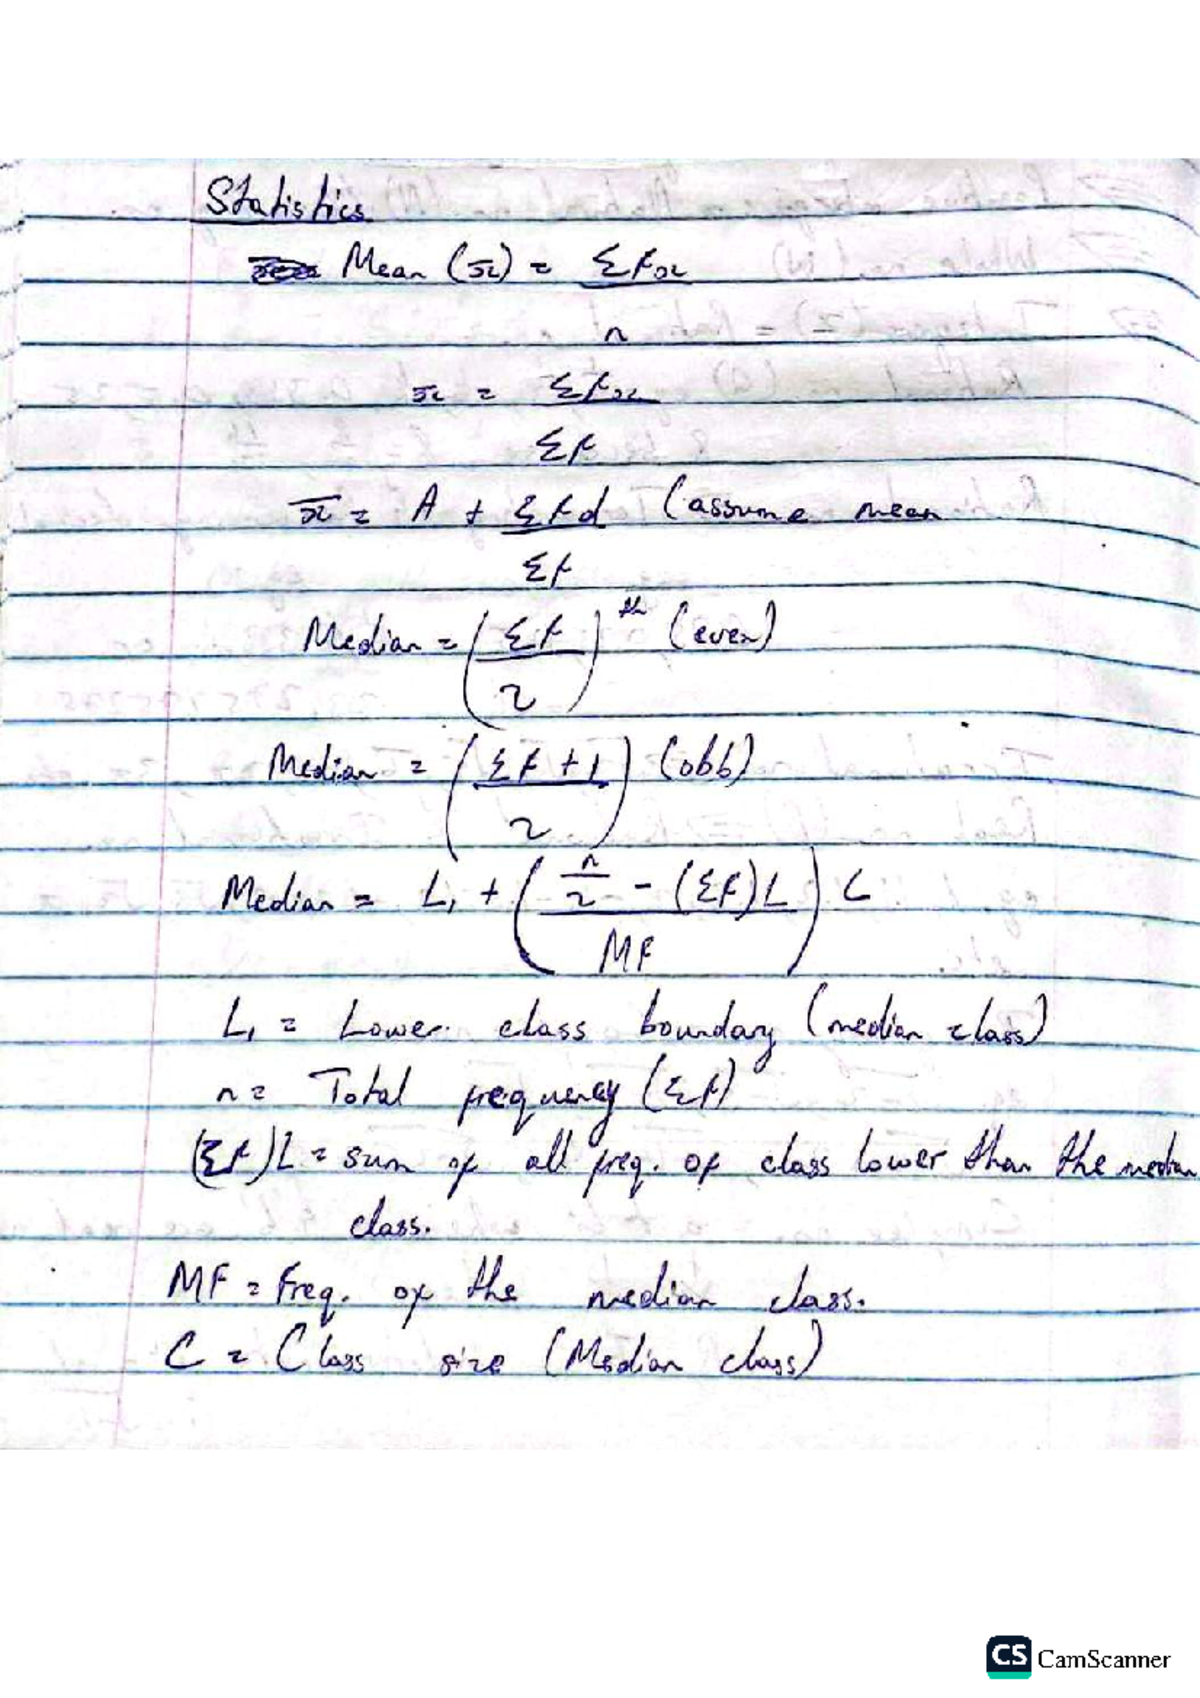 Statistics
Mean (x̄) = Σfx
n
x̄ = Σfx
Σf
x̄ = A + Σfd (assume mean
Σf
Median = (Σf / 2)th (even)
Median = (Σf + 1 / 2) (obb)
Median = L₁ + (n/2 - (Σf)L / MF) C
L₁ = Lower class boundary (median class)
n = Total frequency (Σf)
(Σf)L = sum of all freq. of class lower than the median
class.
MF = Freq. of the median class.
C = Class size (Median class)
CS CamScanner